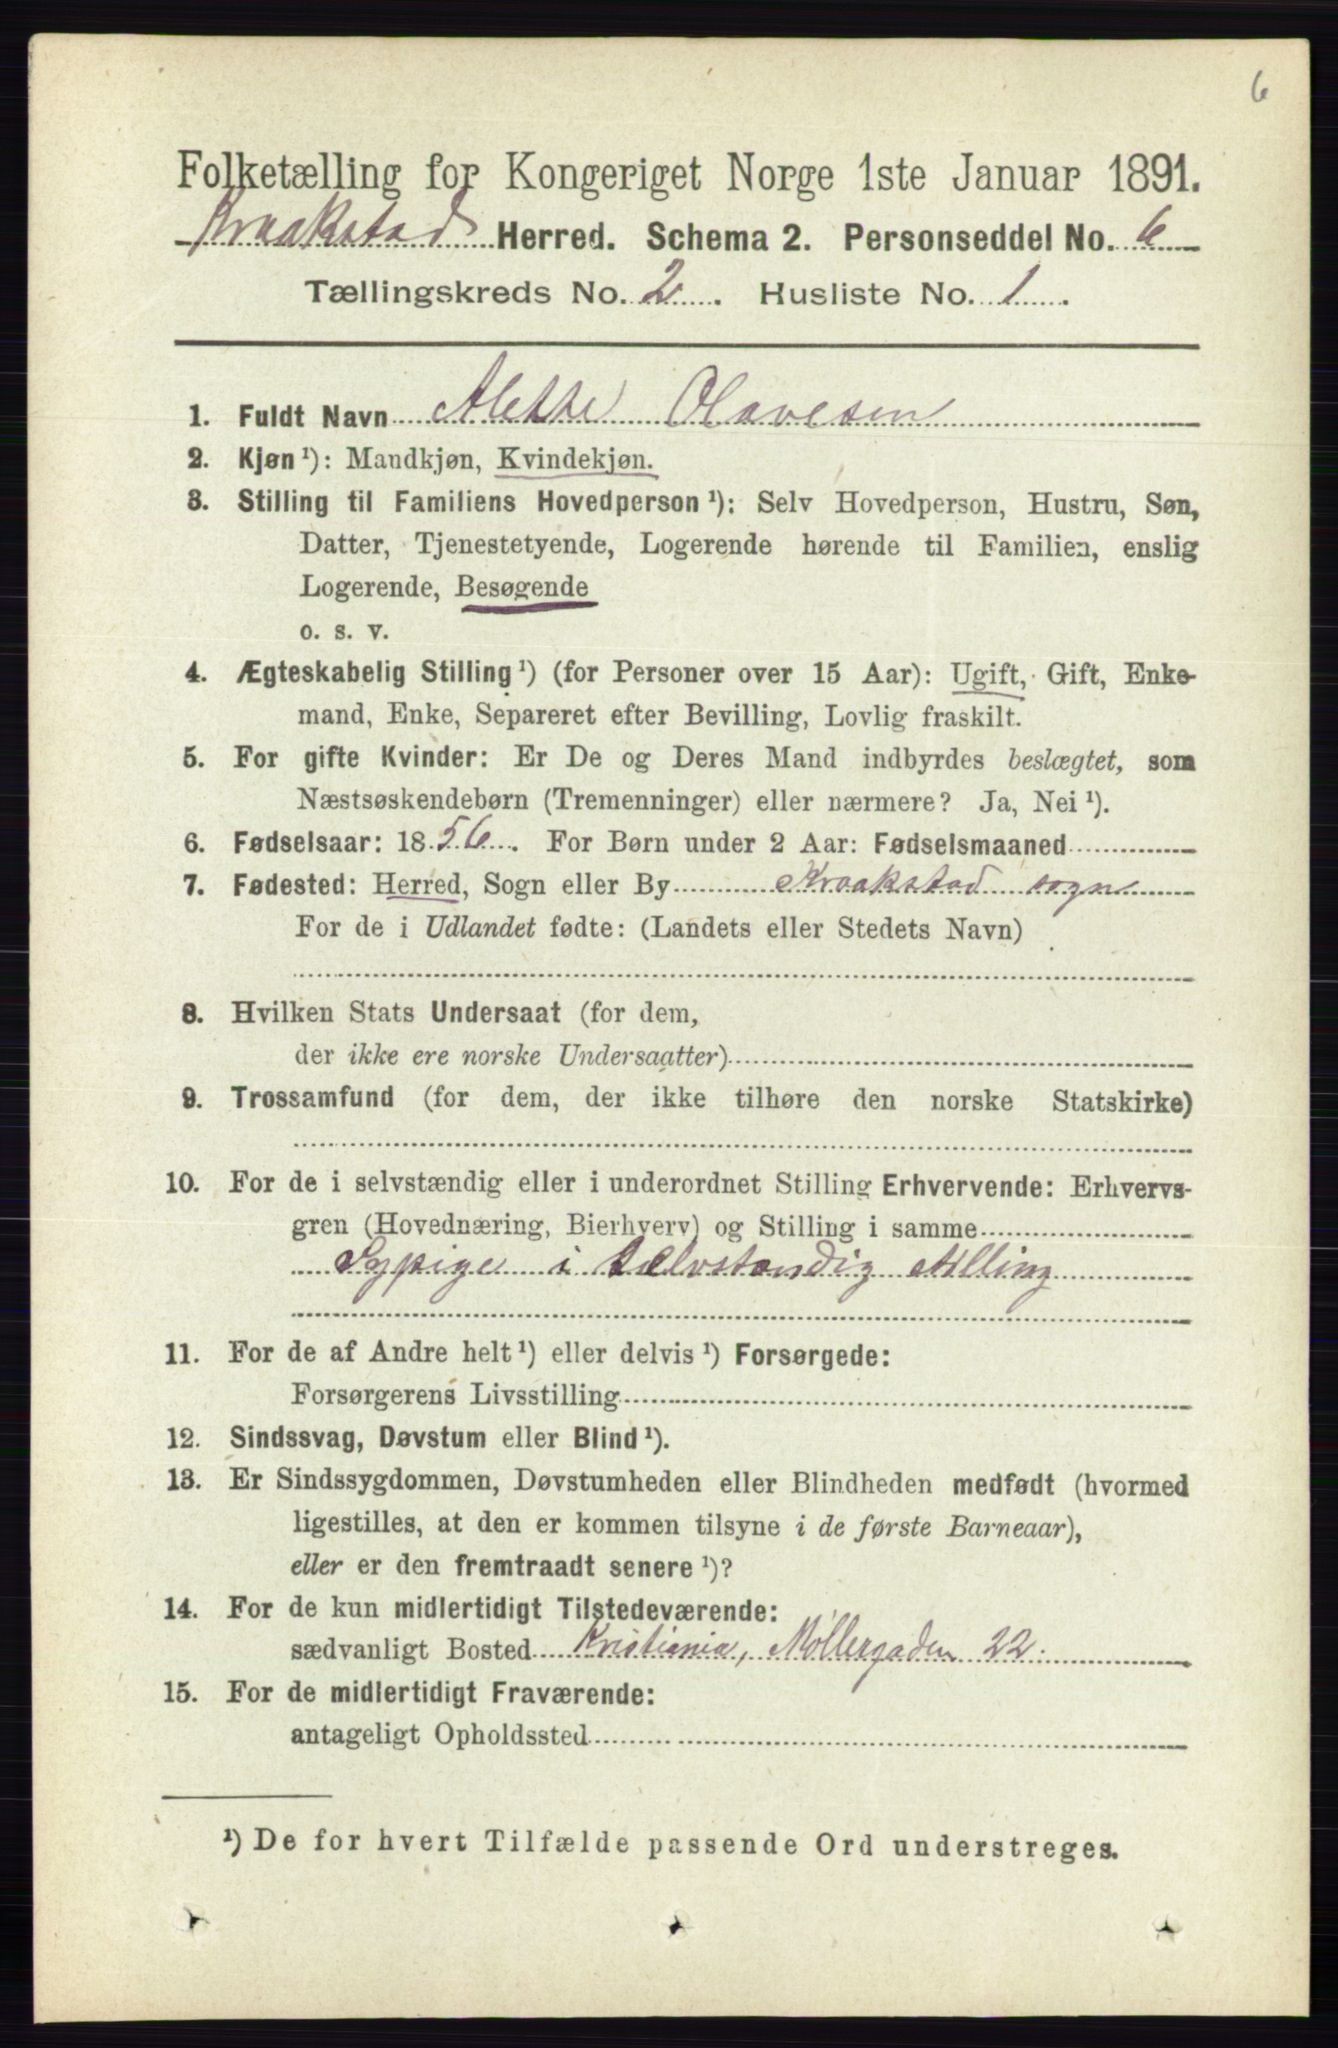 6
Folketælling for Kongeriget Norge 1ste Januar 1891.
Kraakstad Herred. Schema 2. Personseddel No. 6
Tællingskreds No. 2. Husliste No. 1.
1. Fuldt Navn Alette Olavesen
2. Kjøn ¹): Mandkjøn, Kvindekjøn.
3. Stilling til Familiens Hovedperson ¹): Selv Hovedperson, Hustru, Søn,
Datter, Tjenestetyende, Logerende hørende til Familien, enslig
Logerende, Besøgende
o. s. v.
4. Ægteskabelig Stilling ¹) (for Personer over 15 Aar): Ugift, Gift, Enke-
mand, Enke, Separeret efter Bevilling, Lovlig fraskilt.
5. For gifte Kvinder: Er De og Deres Mand indbyrdes beslægtet, som
Næstsøskendebørn (Tremenninger) eller nærmere? Ja, Nei ¹).
6. Fødselsaar: 1856. For Børn under 2 Aar: Fødselsmaaned
7. Fødested: Herred, Sogn eller By Kraakstad sogn
For de i Udlandet fødte: (Landets eller Stedets Navn)
8. Hvilken Stats Undersaat (for dem,
der ikke ere norske Undersaatter)
9. Trossamfund (for dem, der ikke tilhøre den norske Statskirke)
10. For de i selvstændig eller i underordnet Stilling Erhvervende: Erhvervs-
gren (Hovednæring, Bierhverv) og Stilling i samme
Sypige i selvstændig stilling
11. For de af Andre helt ¹) eller delvis ¹) Forsørgede:
Forsørgerens Livsstilling
12. Sindssvag, Døvstum eller Blind ¹).
13. Er Sindssygdommen, Døvstumheden eller Blindheden medfødt (hvormed
ligestilles, at den er kommen tilsyne i de første Barneaar),
eller er den fremtraadt senere ¹)?
14. For de kun midlertidigt Tilstedeværende:
sædvanligt Bosted Kristiania, Møllergaden 22.
15. For de midlertidigt Fraværende:
antageligt Opholdssted
¹) De for hvert Tilfælde passende Ord understreges.